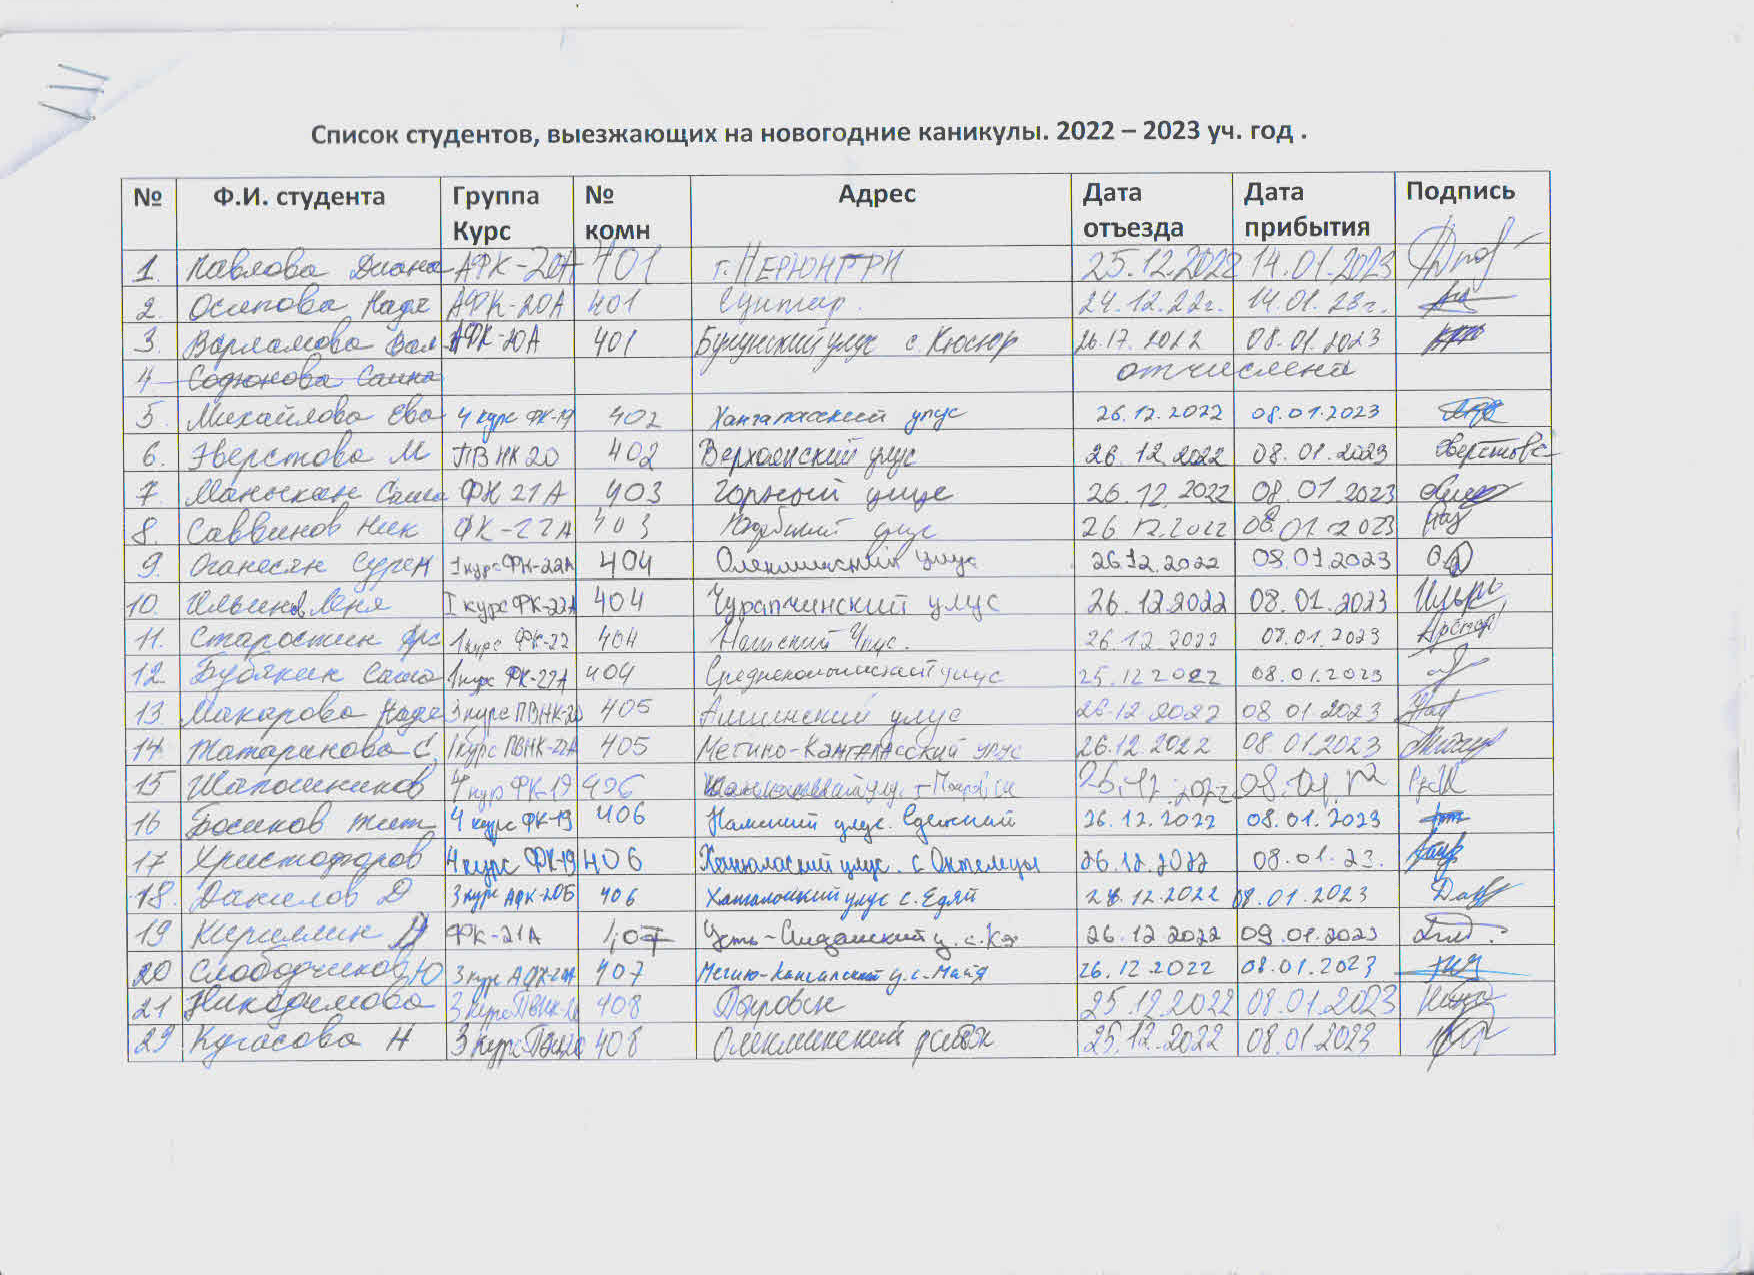 Список студентов, выезжающих на новогодние каникулы. 2022 – 2023 уч. год .
№ Ф.И. студента Группа Курс № комн Адрес Дата отъезда Дата прибытия Подпись
1. Павлова Диана АФК-20А 401 г. НЕРЮНГРИ 25.12.2022 14.01.2023
2. Осипова Надя АФК-20А 401 Сунтар. 24.12.22г. 14.01.23г.
3. Варламова Вал АФК-20А 401 Булунский улус с. Кюсюр 26.12.2022 08.01.2023
4 Содюкова Саина отчислена
5. Михайлова Ева 4 курс ФК-19 402 Хангаласский улус 26.12.2022 08.01.2023
6. Эверстова М ПВНК 20 402 Верхоянский улус 26.12.2022 08.01.2023 Эверстова
7. Маныкан Саша ФК 21А 403 Горный улус 26.12.2022 08.01.2023
8. Саввинов Ник ФК-22А 403 улус 26.12.2022 08.01.2023
9. Оганесян Сурен 1 курс ФК-22А 404 Олекминский улус 26.12.2022 08.01.2023
10. Ильинов Леня I курс ФК-22А 404 Чурапчинский улус 26.12.2022 08.01.2023
11. Старостин Арс 1 курс ФК-22 404 Намский Улус. 26.12.2022 08.01.2023
12. Бубякин Саша 1 курс ФК-22А 404 Среднеколымский улус 25.12.2022 08.01.2023
13. Макарова Надя 3 курс ПВНК-20 405 Амгинский улус 26.12.2022 08.01.2023
14. Татаринова С. 1 курс ПВНК-22А 405 Мегино-Кангаласский улус 26.12.2022 08.01.2023
15 Шапошников 4 курс ФК-19 406 г. Покровск 08.01.
16 Босиков 4 курс ФК-19 406 Намский улус. 26.12.2022 08.01.2023
17. Христофоров 4 курс ФК-19 406 Хангаласский улус. с. Октемцы 26.12.2022 08.01.23.
18. Данилов Д 3 курс АФК-20Б 406 улус с. Едяй 26.12.2022 08.01.2023
19 Кириллин Д ФК-21А 407 Усть-Алданский у. 26.12.2022 09.01.2023
20 Слободчиков Ю 3 курс АФК-20А 407 Мегино-Кангаласский у. с. Майя 26.12.2022 08.01.2023
21 Никодимова 3 курс ПВНК-20 408 Покровск 25.12.2022 08.01.2023
23 Кугасова Н 3 курс 408 Олекминский район 25.12.2022 08.01.2023